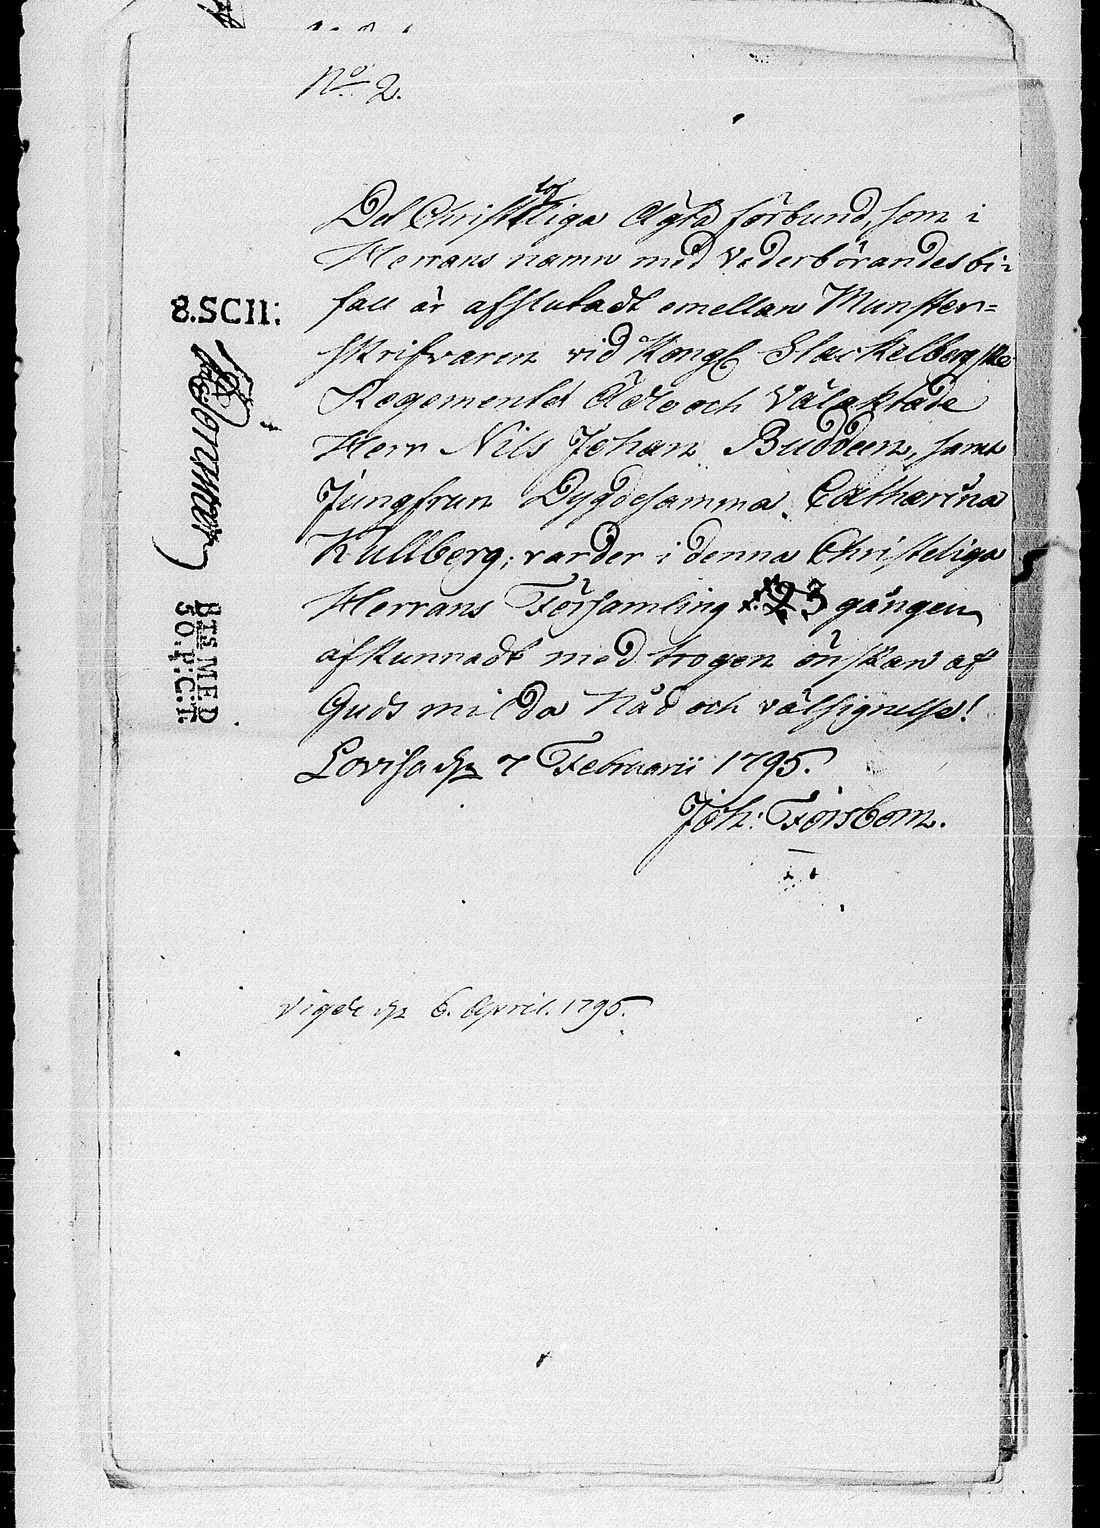 No 2.
Det Christeliga Ägta förbund, som i
Herrans namn med Vederbörandes bi-
fall är afslutadt emellan Munster-
skrifvaren vid Kongl Stackelbergske
Regementet Ädle och Välaktade
Herr Nils Johan Buddeen, samt
Jungfrun Dygdesamma Catharina
Kullberg; varder i denna Christeliga
Herrans Församling 23 gången
afkunnadt med trogen önskan af
Guds milda Nåd och välsignelse!
Lovisa den 7 Februarii 1795.
Joh: Forsbom.
Vigde den 6. April. 1795.
8.SCII:
BTS MED
50.P:C:T.